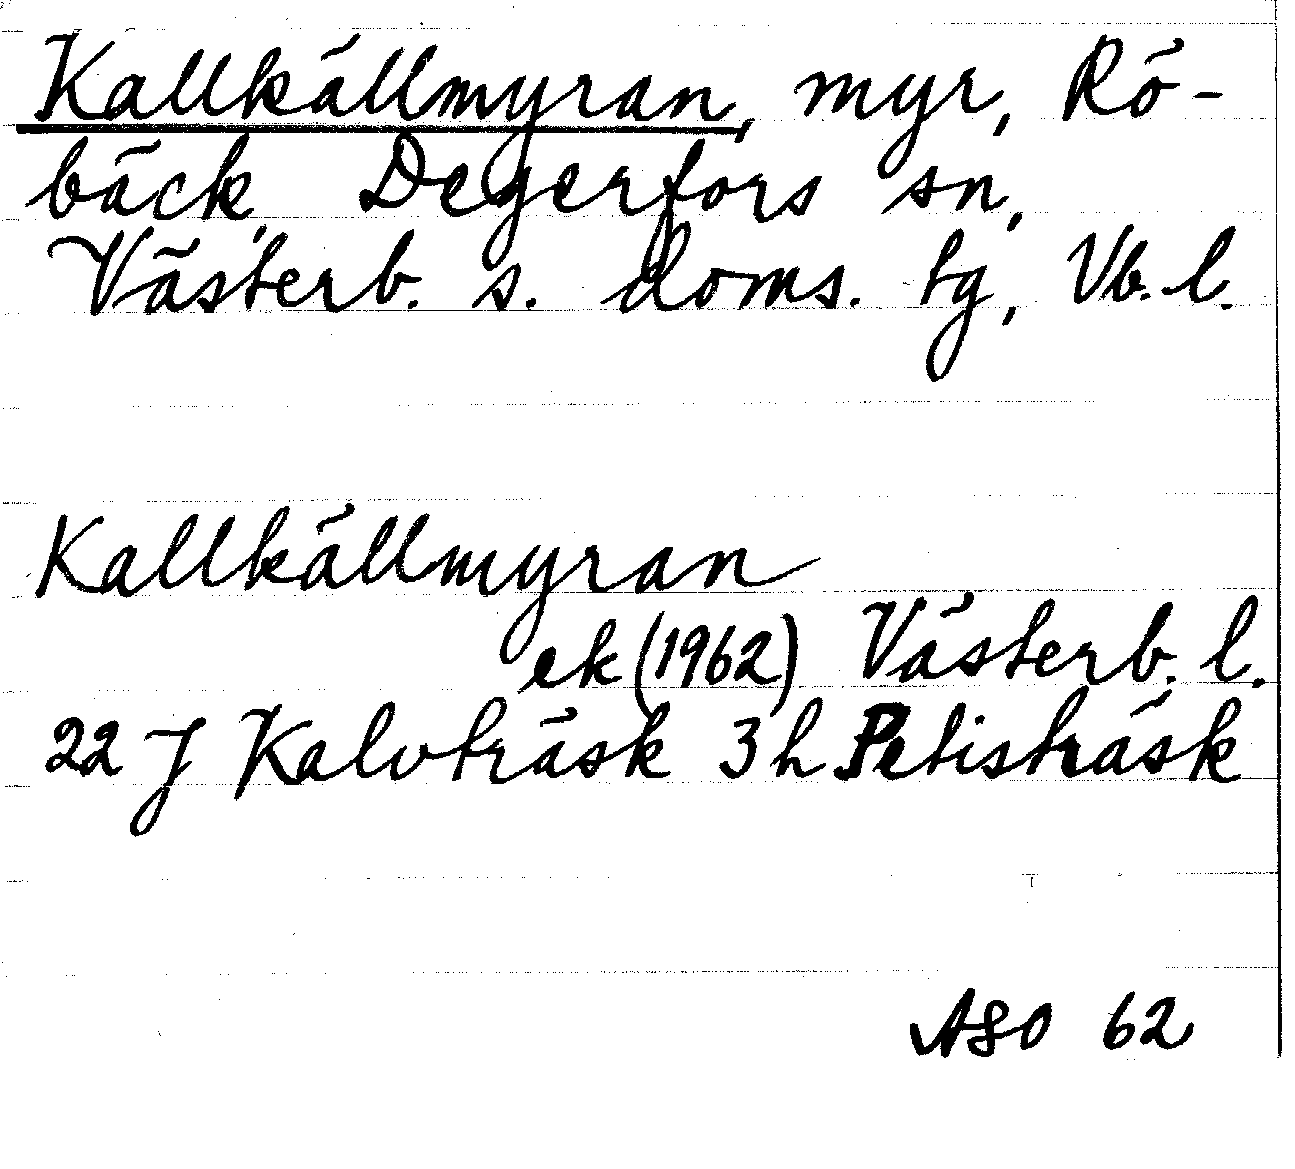 Kallkällmyran, myr, Rö-
bäck, Degerfors sn,
Västerb. s. doms. tg, Vb. l.
Kallkällmyran
ek (1962) Västerb. l.
22 J Kalvträsk 3 h Petisträsk
ASO 62